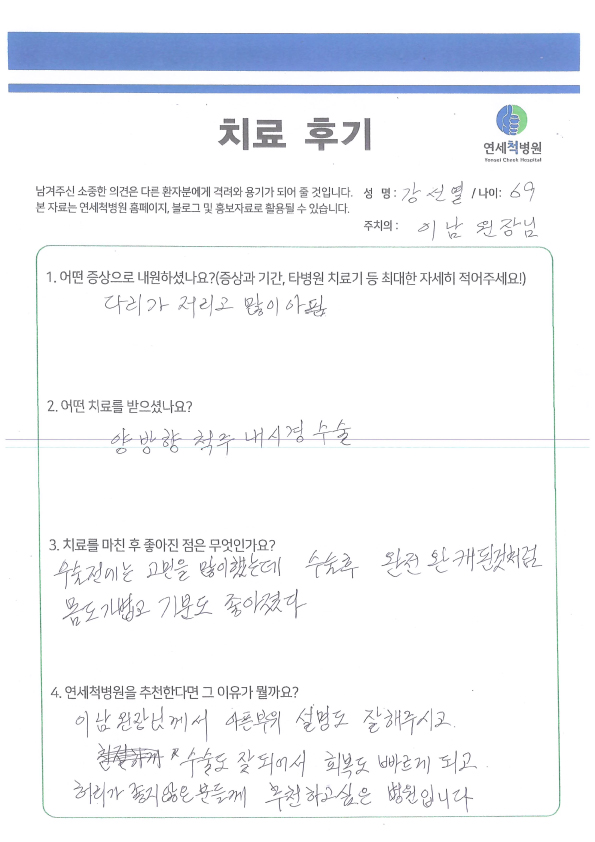 치료 후기
연세척병원
Yonsei Cheok Hospital
남겨주신 소중한 의견은 다른 환자분에게 격려와 용기가 되어 줄 것입니다.
본 자료는 연세척병원 홈페이지, 블로그 및 홍보자료로 활용될 수 있습니다.
성 명 : 강선열 / 나이 : 69
주치의 : 이남 원장님
1. 어떤 증상으로 내원하셨나요?(증상과 기간, 타병원 치료기 등 최대한 자세히 적어주세요!)
다리가 저리고 많이 아픔
2. 어떤 치료를 받으셨나요?
양방향 척주 내시경 수술
3. 치료를 마친 후 좋아진 점은 무엇인가요?
수술전에는 고민을 많이했는데 수술후 완전 완캐된것처럼
몸도가볍고 기분도 좋아졌다
4. 연세척병원을 추천한다면 그 이유가 뭘까요?
이남원장님께서 아픈부위 설명도 잘해주시고
수술도 잘되어서 회복도 빠르게 되고
허리가 좋지않은분들께 추천하고싶은 병원입니다